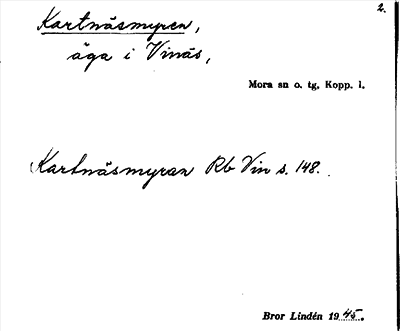 2.
Kartnäsmyren,
äga i Vinäs,
Mora sn o. tg, Kopp. l.
Kartnäsmyran Rb Vin s. 148.
Bror Lindén 1945.